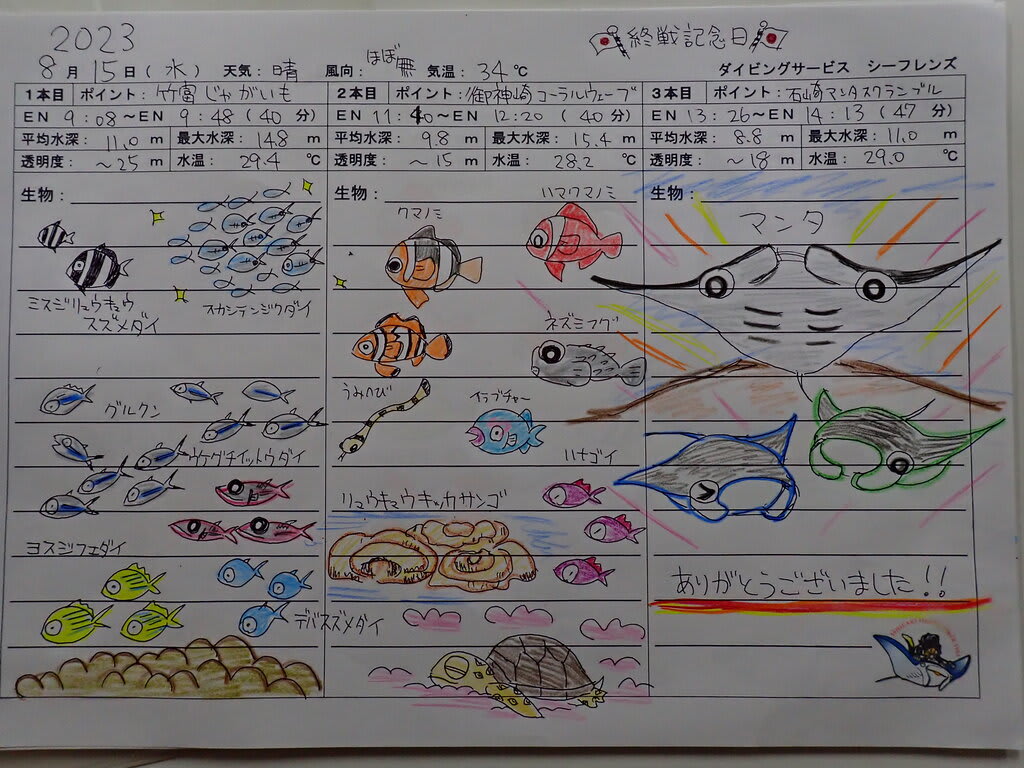 2023
終戦記念日
8月15日(水) 天気:晴 風向:ほぼ無 気温:34℃
ダイビングサービス シーフレンズ
1本目 ポイント:竹富じゃがいも
EN 9:08~EN 9:48(40分)
平均水深:11.0m 最大水深:14.8m
透明度:~25m 水温:29.4℃
生物:
ミスジリュウキュウ
スズメダイ
スカシテンジクダイ
グルクン
ウケグチイットウダイ
ヨスジフエダイ
デバスズメダイ
2本目 ポイント:御神崎コーラルウェーブ
EN 11:40~EN 12:20(40分)
平均水深:9.8m 最大水深:15.4m
透明度:~15m 水温:28.2℃
生物:
ハマクマノミ
クマノミ
ネズミフグ
うみへび
イラブチャー
ハナゴイ
リュウキュウキッカサンゴ
3本目 ポイント:石崎マンタスクランブル
EN 13:26~EN 14:13(47分)
平均水深:8.8m 最大水深:11.0m
透明度:~18m 水温:29.0℃
生物:
マンタ
ありがとうございました!!